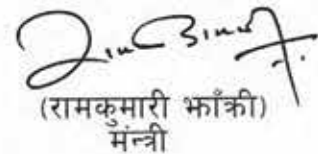 (रामकुमारी झाँक्री)
मन्त्री